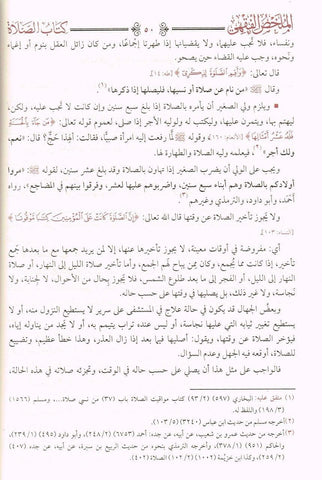 الملخص الفقهي ٥٠ كتاب الصلاة
ونفساء، فلا تجب عليهما، ولا يقضيانها إذا طهرتا إجماعًا، ومن كان زائل العقل بنوم أو إغماء
ونحوه، وجب عليه القضاء حين يصحو.
قال تعالى: ﴿وَأَقِمِ الصَّلَاةَ لِذِكْرِي﴾ [طه: ١٤].
وقال ﷺ: «من نام عن صلاة أو نسيها، فليصلها إذا ذكرها»(١).
• ويلزم ولي الصغير أن يأمره بالصلاة إذا بلغ سبع سنين وإن كانت لا تجب عليه، ولكن
ليهتم بها، ويتمرن عليها، وليكتب له ولوليه الأجر إذا صلى، لعموم قوله تعالى: ﴿مَن جَاءَ بِالْحَسَنَةِ
فَلَهُ عَشْرُ أَمْثَالِهَا﴾ [الأنعام: ١٦٠] وقوله ﷺ لما رفعت إليه امرأة صبيًّا، فقالت: ألهذا حج؟ قال: «نعم،
ولك أجر»(٢)، فيعلمه وليه الصلاة والطهارة لها.
ويجب على الولي أن يضرب الصغير إذا تهاون بالصلاة وقد بلغ عشر سنين، لقوله ﷺ: «مروا
أولادكم بالصلاة وهم أبناء سبع سنين، واضربوهم عليها لعشر، وفرقوا بينهم في المضاجع»، رواه
أحمد، وأبو داود، والترمذي وغيرهم(٣).
ولا يجوز تأخير الصلاة عن وقتها قال الله تعالى: ﴿إِنَّ الصَّلَاةَ كَانَتْ عَلَى الْمُؤْمِنِينَ كِتَابًا مَّوْقُوتًا﴾
[النساء: ١٠٣].
أي: مفروضة في أوقات معينة، لا يجوز تأخيرها عنها، إلا لمن يريد جمعها مع ما بعدها جمع
تأخير، إذا كانت مما تجمع، وكان ممن يباح لهم الجمع، وأما تأخير صلاة الليل إلى النهار، أو صلاة
النهار إلى الليل، أو الفجر إلى ما بعد طلوع الشمس، فلا يجوز بحال من الأحوال، لا لجنابة، ولا
نجاسة، ولا غير ذلك، بل يصليها في وقتها على حسب حاله.
وبعض الجهال قد يكون في حالة علاج في المستشفى على سرير لا يستطيع النزول منه، أو لا
يستطيع تغيير ثيابه التي عليها نجاسة، أو ليس عنده تراب يتيمم به، أو لا يجد من يناوله إياه،
فيؤخر الصلاة عن وقتها، ويقول: أصليها فيما بعد إذا زال العذر، وهذا خطأ عظيم، وتضييع
للصلاة، أوقعه فيه الجهل وعدم السؤال.
فالواجب على مثل هذا أن يصلي على حسب حاله في الوقت، وتجزئه صلاته في هذه الحالة،
(١) متفق عليه: البخاري (٥٩٧) (٢/ ٩٣) كتاب مواقيت الصلاة باب (٣٧) من نسي صلاة...، ومسلم (١٥٦٦)
(٣/ ١٩٨) واللفظ له.
(٢) أخرجه مسلم من حديث ابن عباس (٣٢٤٠) (٥/ ١٠٣).
(٣) أخرجه من حديث عمرو بن شعيب، عن أبيه، عن جده: أحمد (٦٧٥٣) (٢/ ٢٤٨)، وأبو داود (٤٩٥) (١/ ٢٣٩)،
والحاكم (٩٥١) (١/ ٤٧٨)، وأخرجه الترمذي بنحوه من حديث الربيع بن سبرة، عن أبيه، عن جده (٤٠٧)
(٢/ ٢٥٩)، وكذا ابن خزيمة (١٠٠٢) (٢/ ١٠٢) الصلاة (٤٠٢).